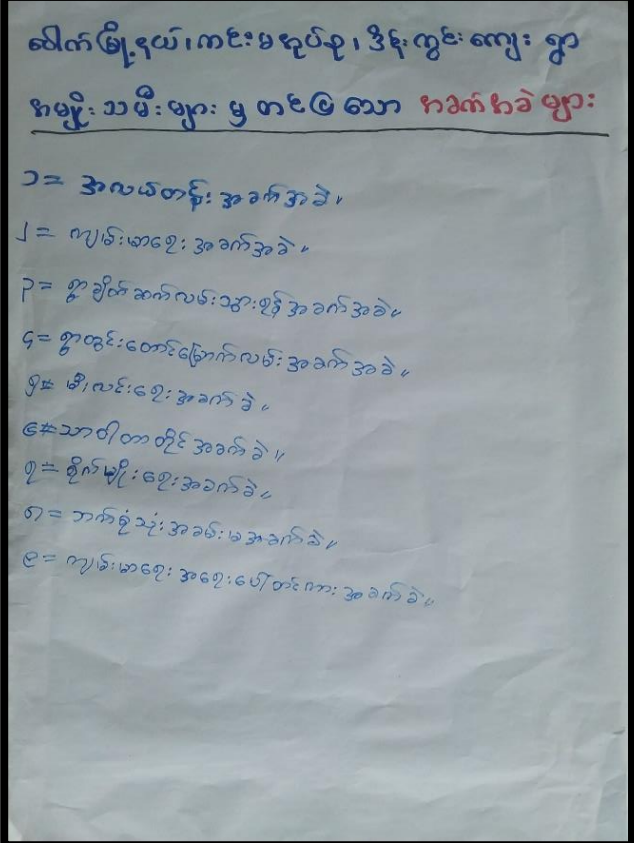 ပေါက်မြို့နယ်၊ကင်းမအုပ်စု၊ဒိန်းကွင်းကျေးရွာ
အမျိုးသမီးများမှတင်ပြသောအခက်အခဲများ
၁= အလယ်တန်းအခက်အခဲ။
၂= ကျမ်းမာရေးအခက်အခဲ။
၃= ရွာချိတ်ဆက်လမ်းသွားရန်အခက်အခဲ။
၄= ရွာတွင်းတောင်မြောက်လမ်းအခက်အခဲ။
၅= မီးလင်းရေးအခက်ခဲ။
၆= သာဝါတာတိုင်အခက်ခဲ။
၇= စိုက်မျိုးရေးအခက်ခဲ။
၈= ဘက်စုံသုံးအခမ်းမအခက်ခဲ။
၉= ကျမ်းမာရေးအရေးပေါ်တင်ကားအခက်ခဲ။